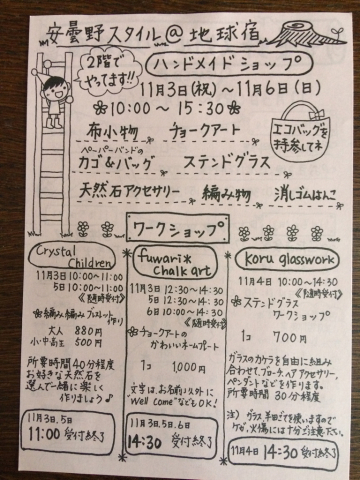 安曇野スタイル@地球宿
2階で
やってます!!
ハンドメイドショップ
11月3日(祝)〜11月6日(日)
10:00〜15:30
布小物
チョークアート
エコバッグを
持参してネ
ペーパーバンドの
カゴ&バッグ
ステンドグラス
天然石アクセサリー
編み物
消しゴムはんこ
ワークショップ
Crystal
Children
11月3日10:00〜11:00
5日10:00〜11:00
《随時受付》
編み編みブレスレット
作り
大人 880円
小中高生 500円
所要時間40分程度
お好きな天然石を
選んで一緒に楽しく
作りましょう♪
11月3日、5日
11:00 受付終了
fuwari*
chalk art
11月3日 12:30〜14:30
5日 12:30〜14:30
6日 10:00〜14:30
《随時受付》
チョークアートの
かわいいネームポート
1コ 1,000円
文字は、お名前以外に
"Well come"などもOK!
11月3日、5日、6日
14:30 受付終了
Koru glasswork
11月4日 10:00〜14:30
《随時受付》
ステンドグラス
ワークショップ
1コ 700円
ガラスのカケラを自由に組み
合わせて、ブローチ、ヘアアクセサリー
ペンダントなどを作ります。
所要時間 30分程度
注) グラス、半田ごてを使いますので
ケガ、火傷には十分ご注意下さい。
11月4日 14:30 受付終了